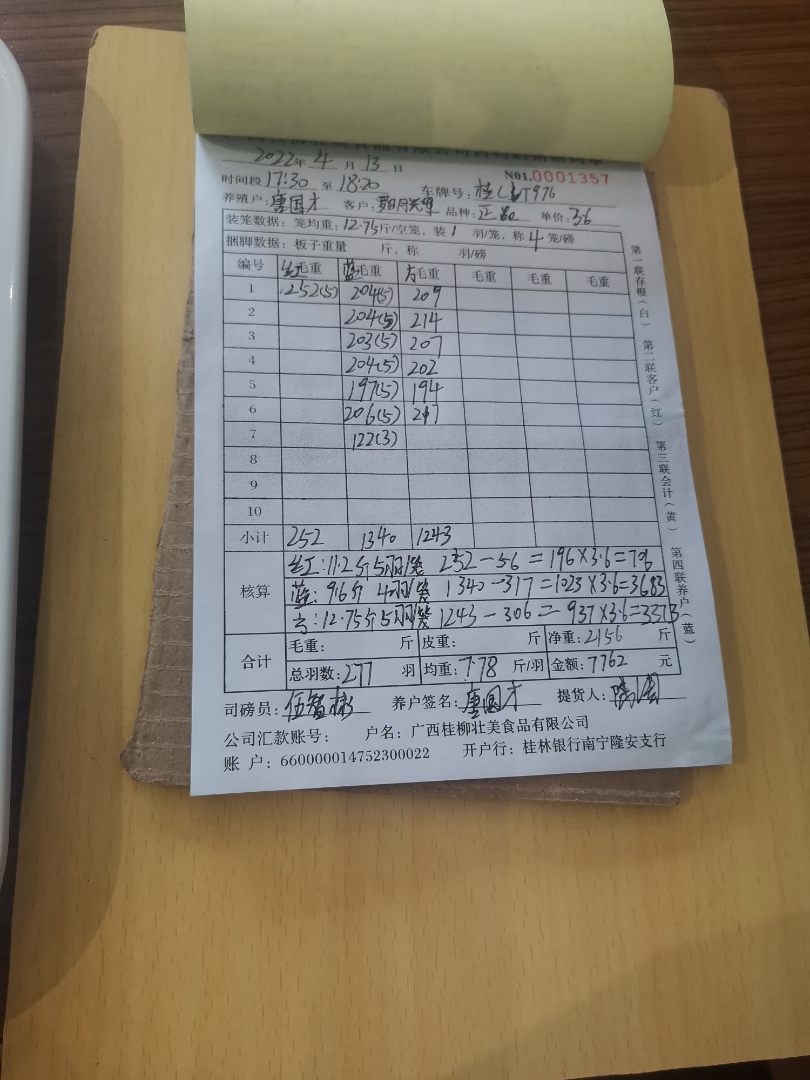 2022年 4 月 13 日
N01.0001357
时间段 17:30 至 18:20 车牌号: 桂
养殖户: 唐国才 客户: 品种: 正品 单价: 3.6
装笼数据: 笼均重: 12.75斤/空笼, 装 1 羽/笼, 称 4 笼/磅
捆脚数据: 板子重量 斤, 称 羽/磅
编号 红毛重 蓝毛重 毛重 毛重 毛重 毛重
1 252(5) 204(5) 209
2 204(5) 214
3 203(5) 207
4 204(5) 202
5 197(5) 194
6 206(5) 217
7 122(3)
8
9
10
小计 252 1340 1243
核算
红: 11.2斤5羽/笼 252-56=196×3.6=706
蓝: 9.6斤 4羽/笼 1340-317=1023×3.6=3683
12.75斤5羽/笼 1243-306=937×3.6=3373
合计
毛重: 斤 皮重: 斤 净重: 2156 斤
总羽数: 277 羽 均重: 7.78 斤/羽 金额: 7762 元
司磅员: 伍智彬 养户签名: 唐国才 提货人:
公司汇款账号: 户名: 广西桂柳壮美食品有限公司
账 户: 660000014752300022 开户行: 桂林银行南宁隆安支行
第一联存根(白) 第二联客户(红) 第三联会计(黄) 第四联养户(蓝)